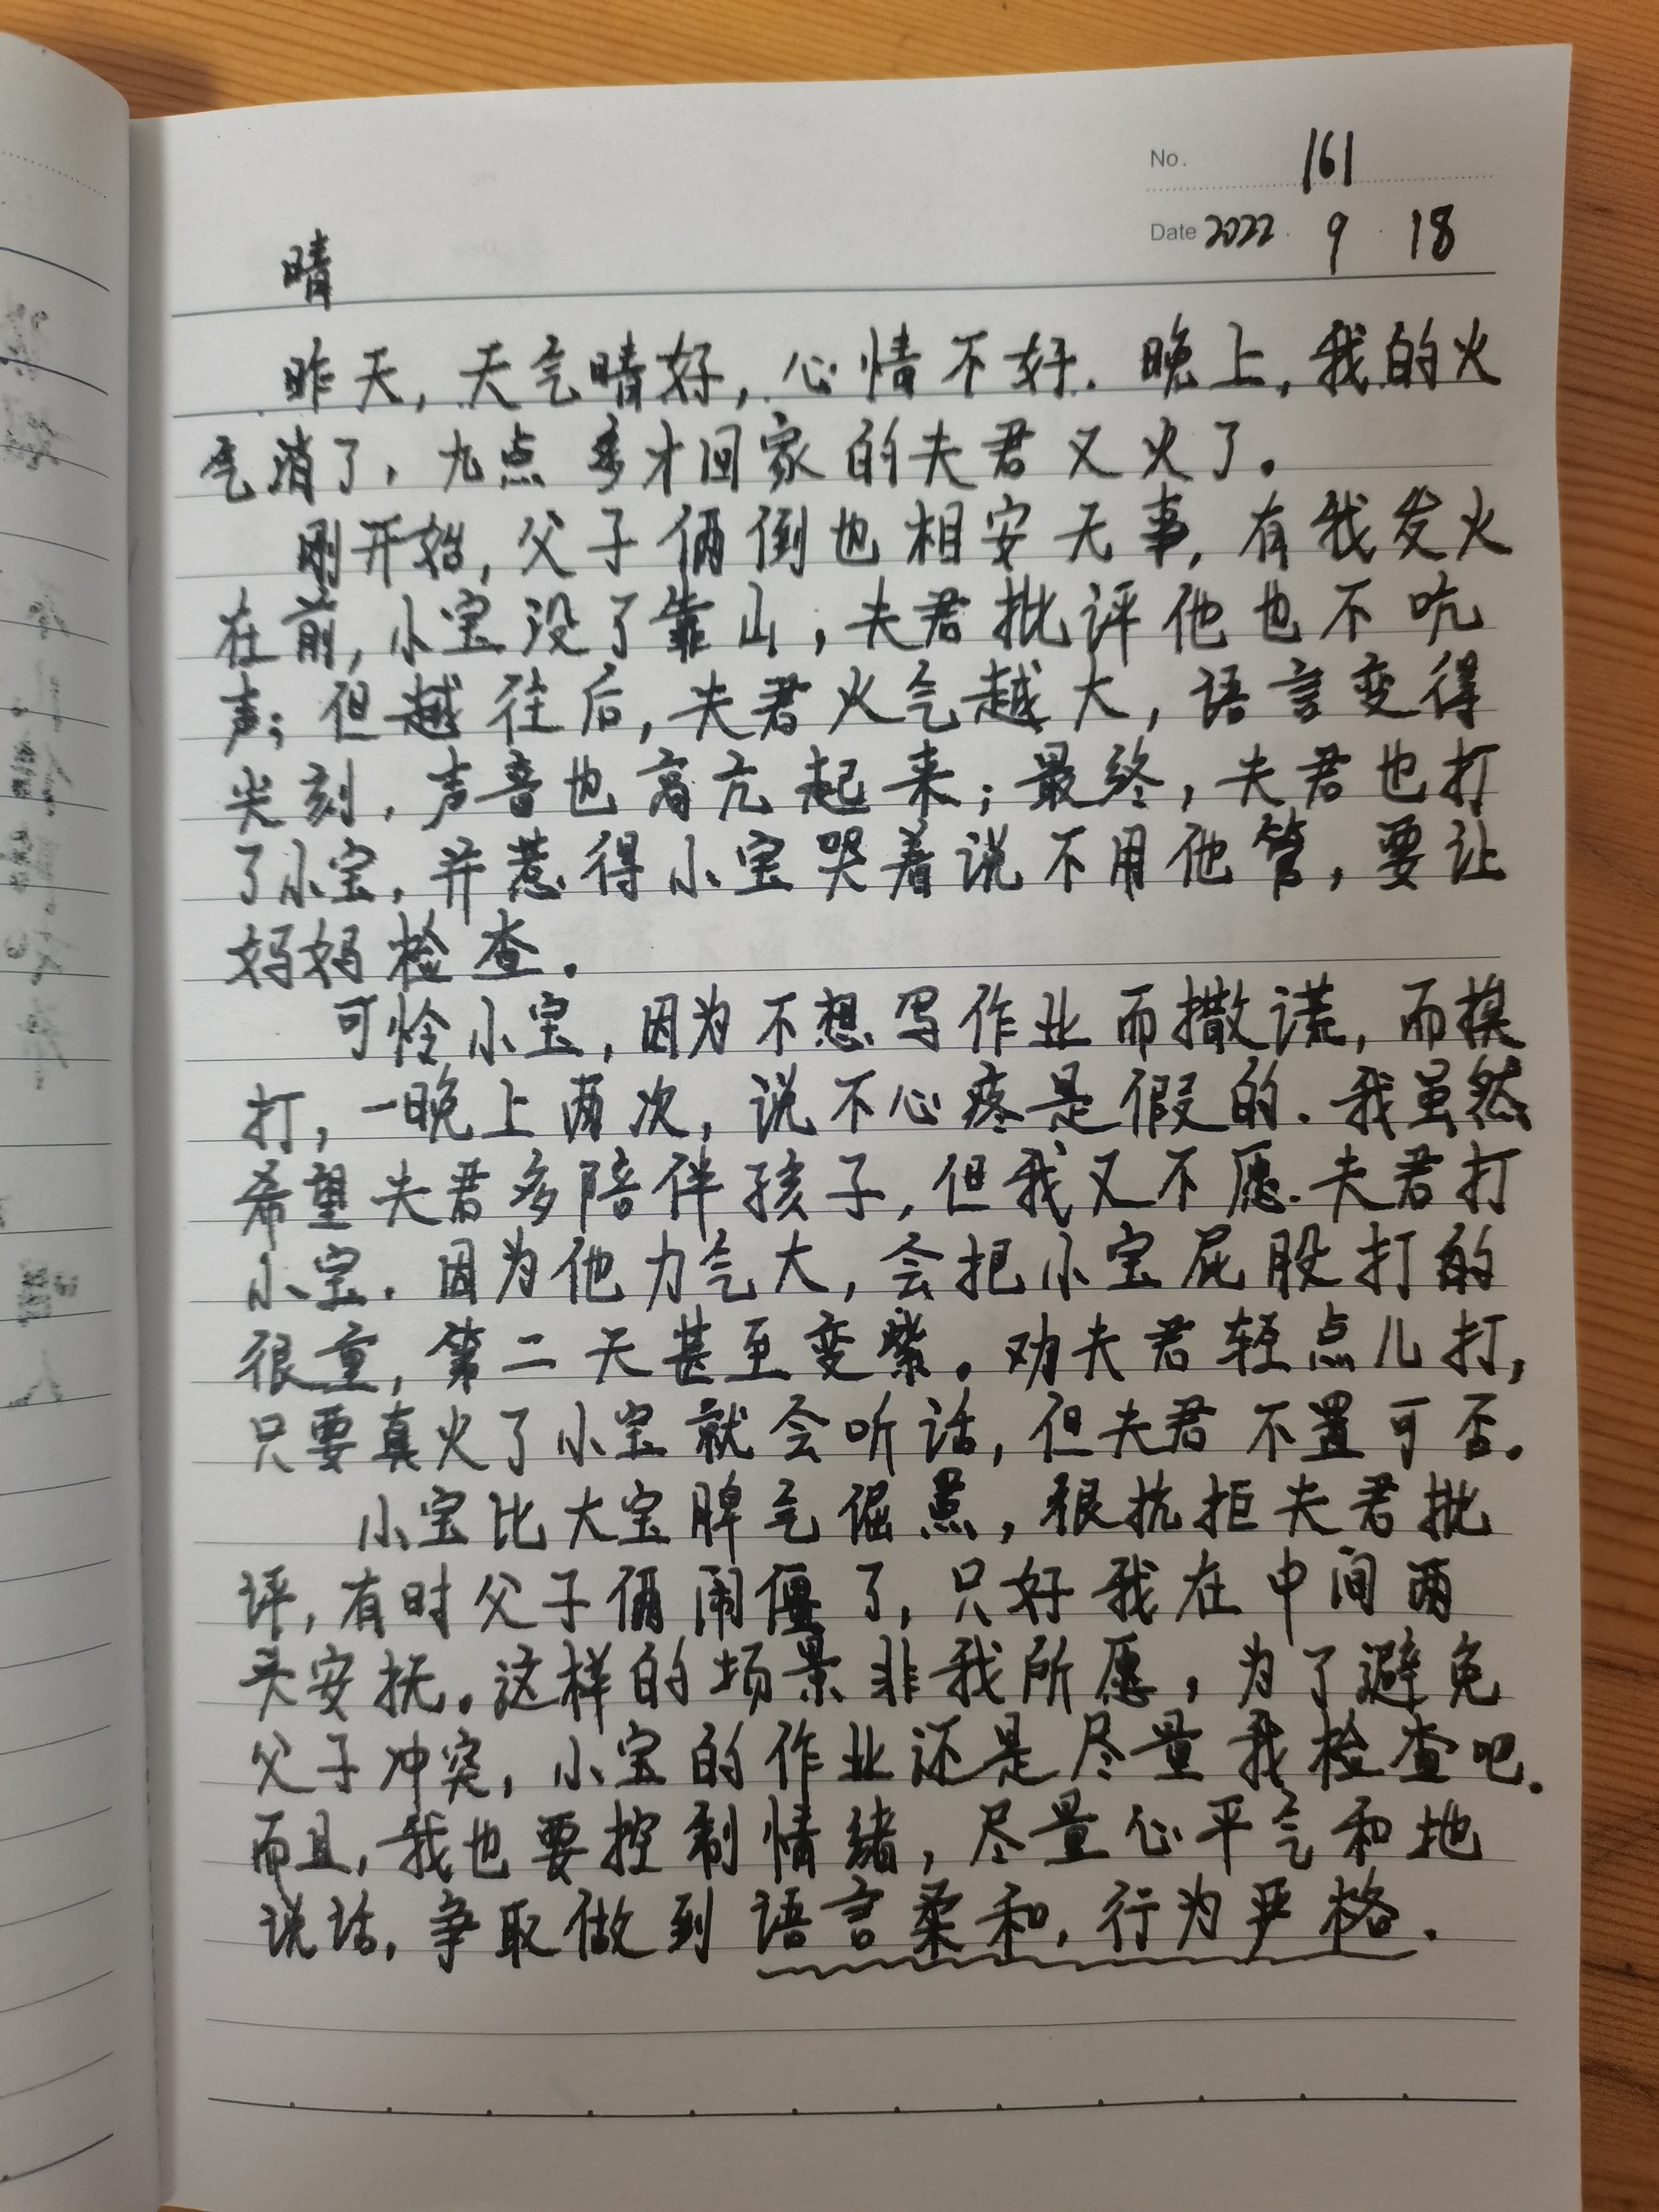 No. 161
Date 2022 . 9 . 18
晴
昨天,天气晴好,心情不好.晚上,我的火
气消了,九点多才回家的夫君又火了。
刚开始,父子俩倒也相安无事,有我发火
在前,小宝没了靠山,夫君批评他也不吭
声;但越往后,夫君火气越大,语言变得
尖刻,声音也高亢起来;最终,夫君也打
了小宝,并惹得小宝哭着说不用他管,要让
妈妈检查。
可怜小宝,因为不想写作业而撒谎,而挨
打,一晚上两次,说不心疼是假的.我虽然
希望夫君多陪伴孩子,但我又不愿夫君打
小宝.因为他力气大,会把小宝屁股打的
很重,第二天甚至变紫。劝夫君轻点儿打,
只要真火了小宝就会听话,但夫君不置可否。
小宝比大宝脾气倔点,很抗拒夫君批
评,有时父子俩闹僵了,只好我在中间两
头安抚。这样的场景非我所愿,为了避免
父子冲突,小宝的作业还是尽量我检查吧.
而且,我也要控制情绪,尽量心平气和地
说话,争取做到语言柔和,行为严格.